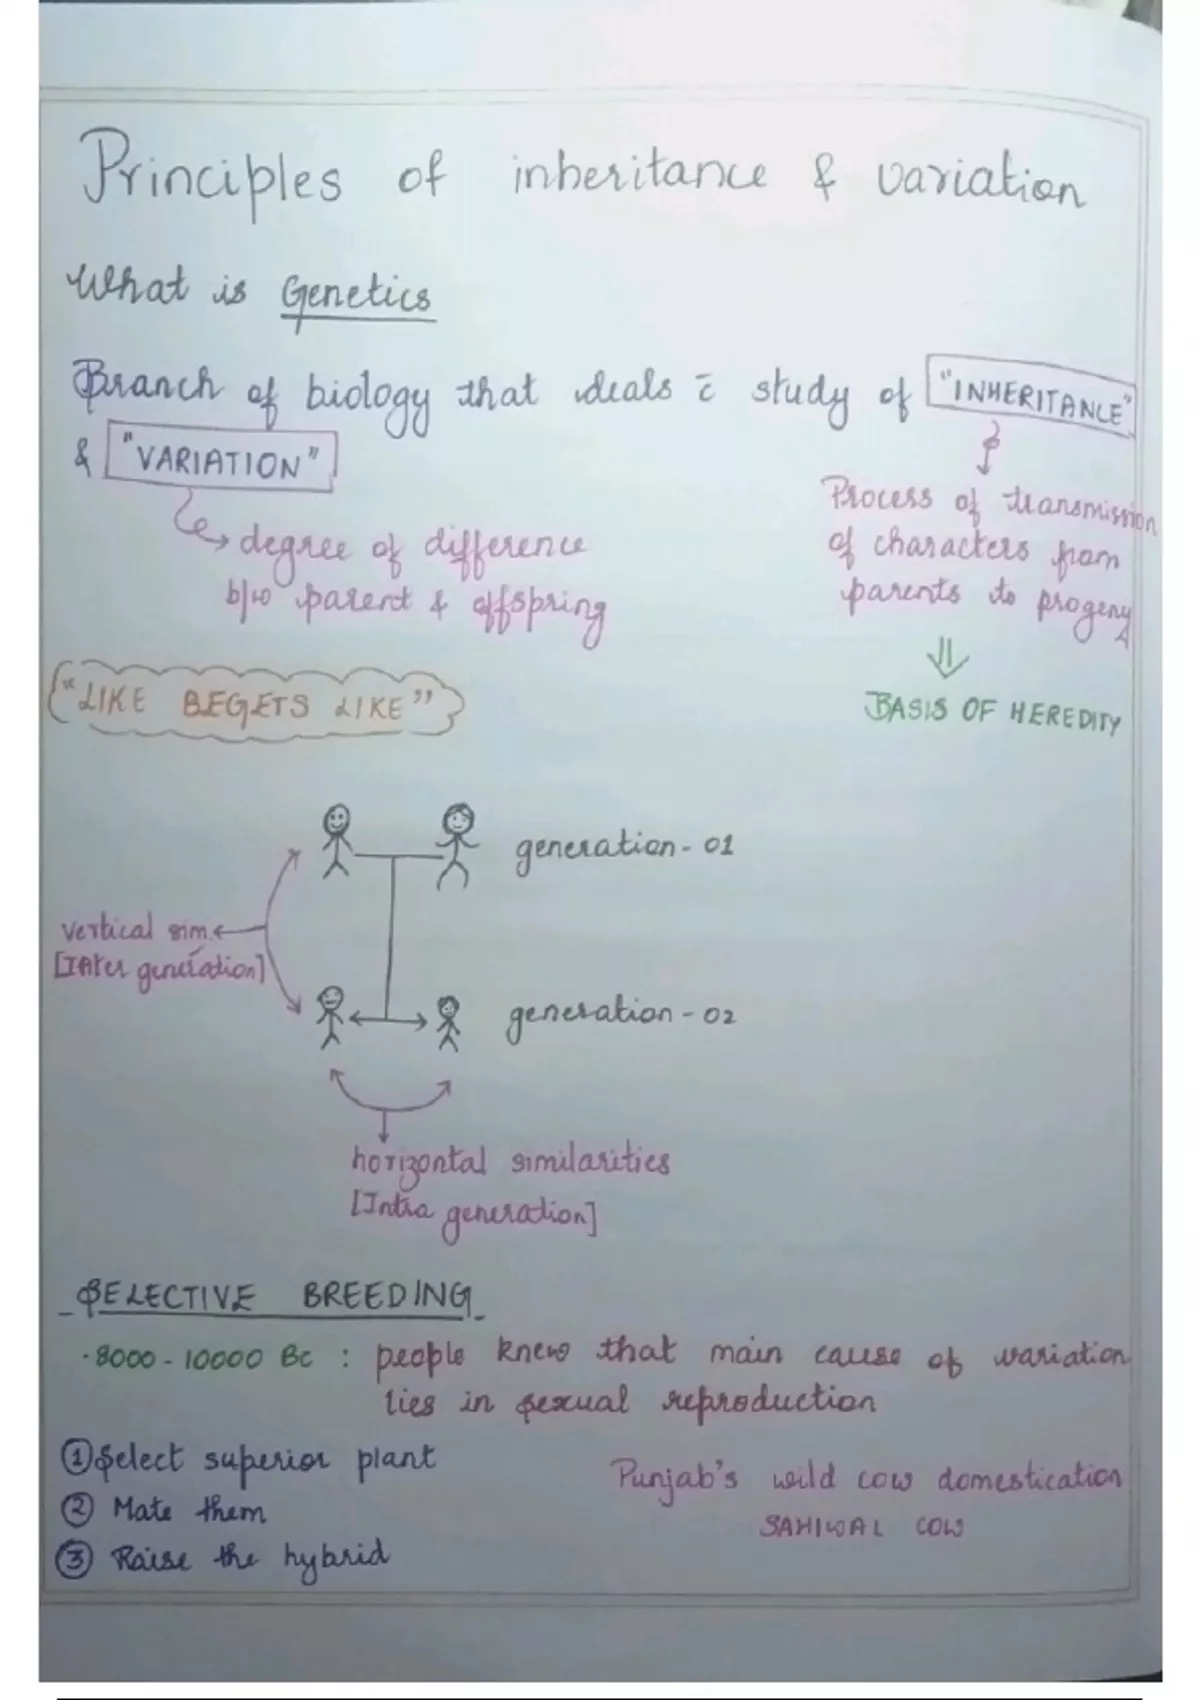 Principles of inheritance & variation
What is Genetics
Branch of biology that deals c̄ study of "INHERITANCE"
& "VARIATION"
degree of difference
b/w parent & offspring
Process of transmission
of characters from
parents to progeny
BASIS OF HEREDITY
"LIKE BEGETS LIKE"
generation - 01
vertical sim.
[Inter generation]
generation - 02
horizontal similarities
[Intra generation]
SELECTIVE BREEDING
· 8000 - 10000 BC : people knew that main cause of variation
lies in sexual reproduction
① Select superior plant
② Mate them
③ Raise the hybrid
Punjab's wild cow domestication
SAHIWAL COW